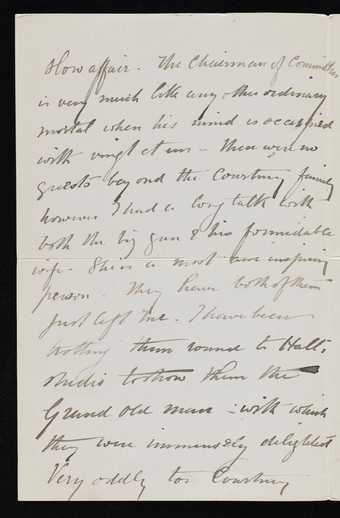 slow affair. The Chairman of Committees
is very much like any other ordinary
mortal when his mind is occupied
with vingt et un – there were no
guests beyond the Courtney family
however I had a long talk with
both the big gun & his formidable
wife. She is a most awe inspiring
person. They have both of them
just left me. I have been
trotting them round to Hall's
studio to show them the
Grand old man – with which
they were immensely delighted
Very oddly too Courtney